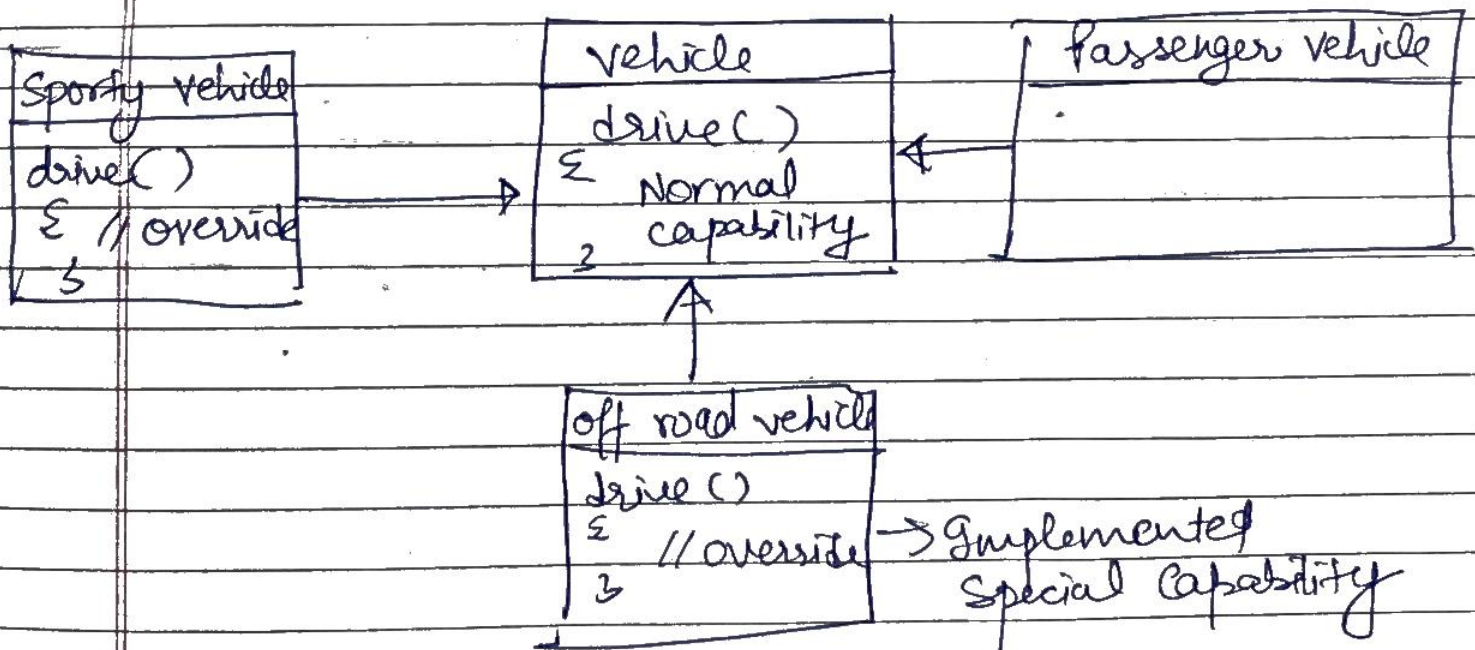 Sporty Vehicle
drive()
{ // override
}
Vehicle
drive()
{ Normal
capability
}
Passenger Vehicle
off road vehicle
drive()
{
// override → Implemented
}
Special Capability